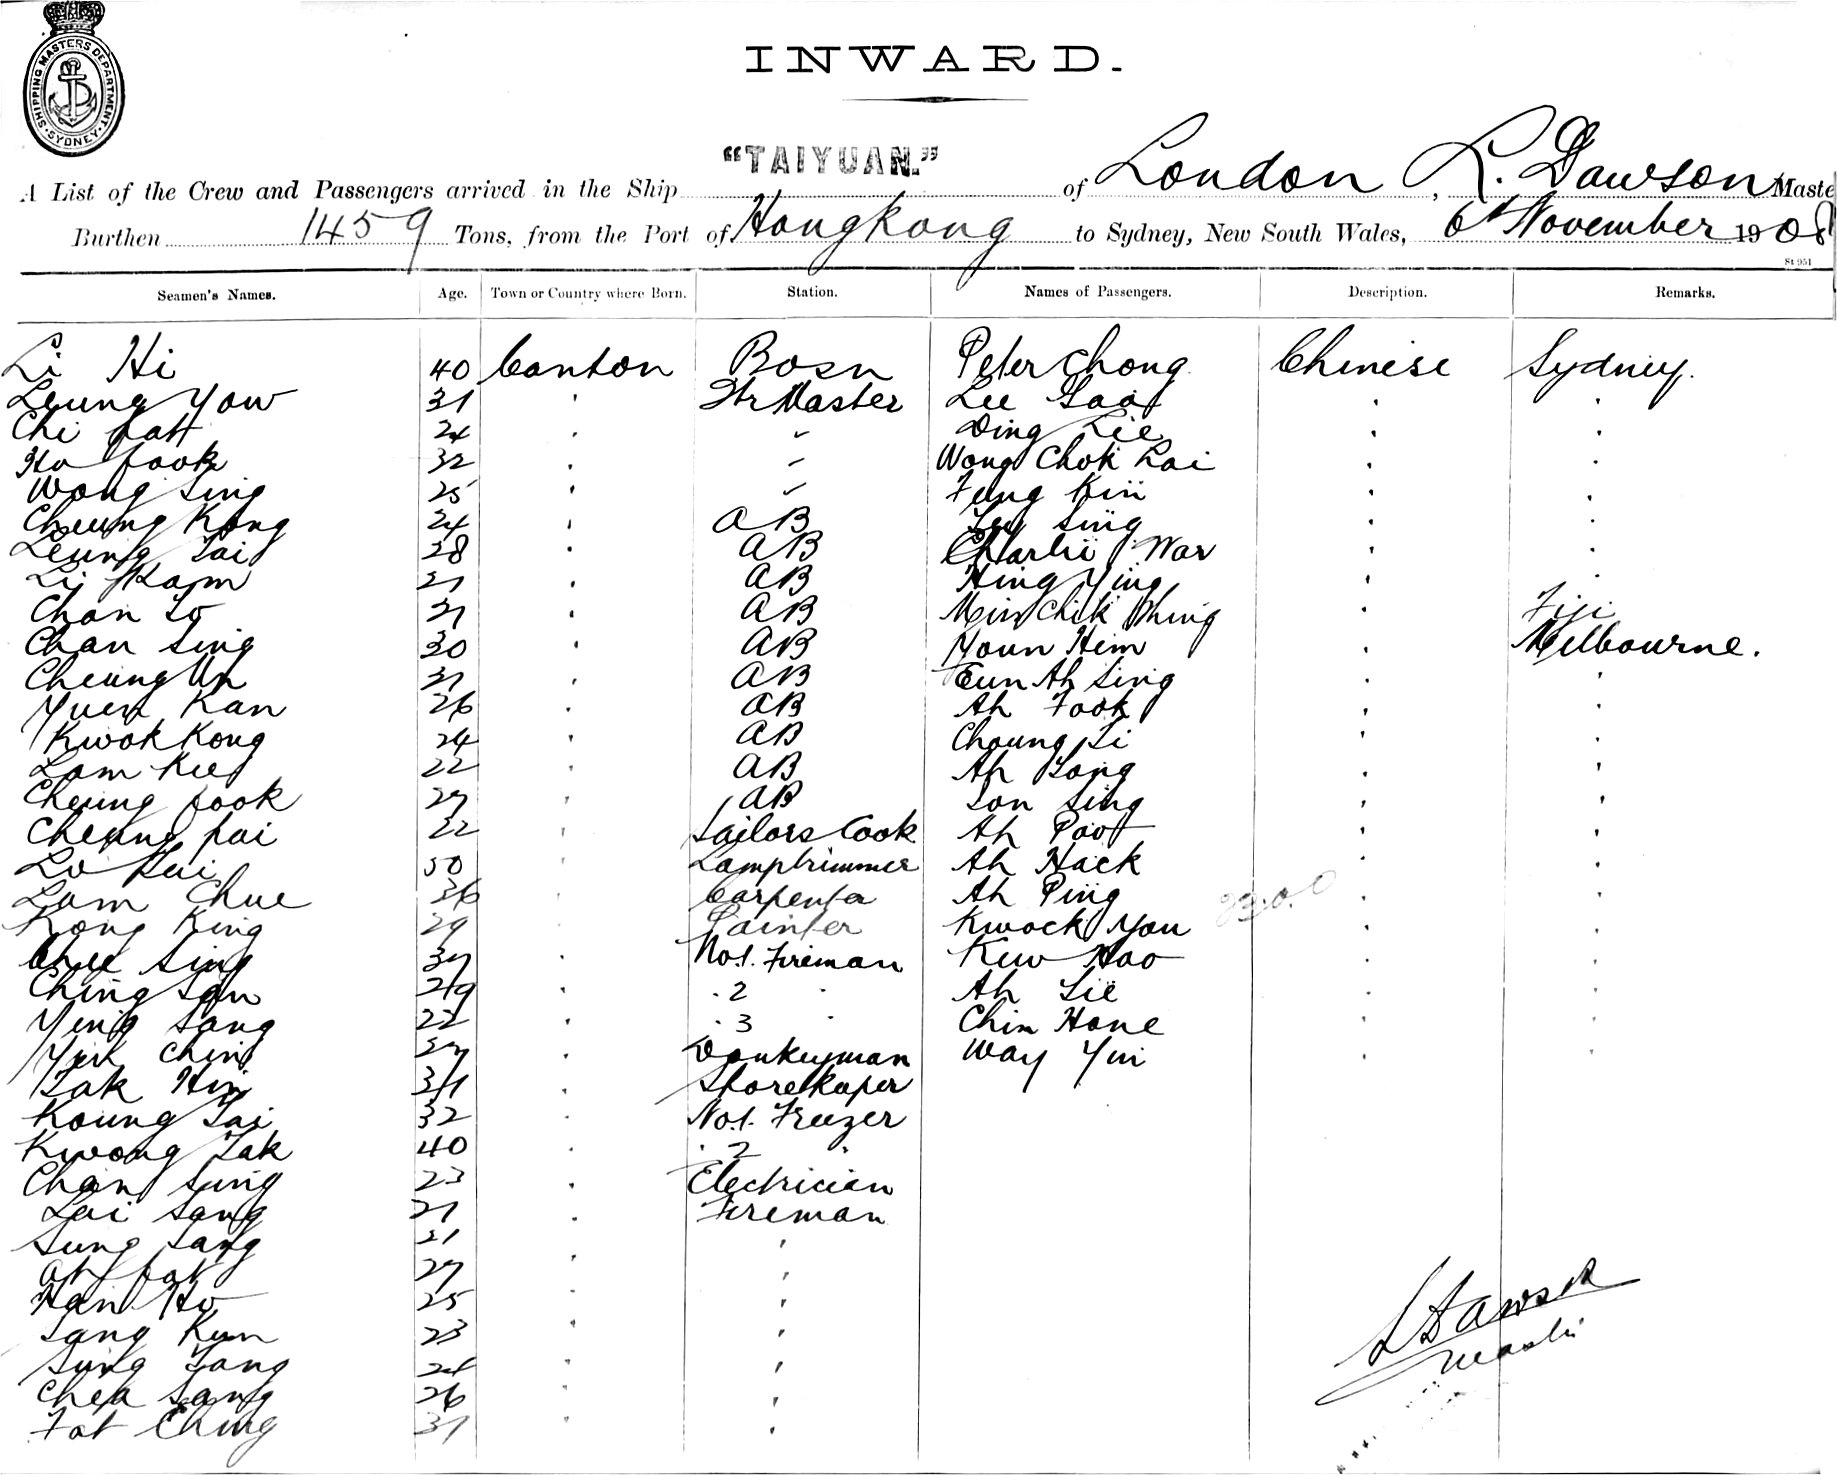 SHIPPING MASTERS DEPARTMENT. SYDNEY.
INWARD.
"TAIYUAN."
A List of the Crew and Passengers arrived in the Ship of London, L. Dawson Maste
Burthen 1459 Tons, from the Port of Hongkong to Sydney, New South Wales, 6th November 1908
St 951
Seamen's Names. Age. Town or Country where Born. Station. Names of Passengers. Description. Remarks.
Li Hi 40 Canton Bosn Peter Chong Chinese Sydney.
Leung Yow 31 ' Qr Master Lee " "
Chi Fatt 24 ' " Ding Lee " "
Ho Fook 32 ' " Wong Chok Lai " "
Wong Sing 25 ' " Fung Kin " "
Cheung Kong 24 ' AB Sing " "
Leung Tai 28 ' AB Charlie War " "
Li Kam 27 ' AB Hing Ying " "
Chan So 31 ' AB Chik Fiji
Chan Sing 30 ' AB Youn Hem " Melbourne.
Cheung Un 31 ' AB Eun Ah Sing " "
Yuen Kan 26 ' AB Ah Fook " "
Kwok Kong 24 ' AB Choung Li " "
Lam Kee 22 ' AB Ah Tong " "
Cheung Fook 27 ' AB Son Sing " "
Cheung Fai 22 ' Sailors Cook Ah Poo " "
Lo Kui 50 ' Lamptrimmer Ah Hack " "
Lam Chue 36 ' Carpenter Ah Ping " "
Kong King 29 ' Painter Kwock You " "
Chee Sing 37 ' No 1. Fireman Kew Hoo " "
Ching San 29 ' " 2 " Ah Lee " "
Ying Sang 22 ' " 3 " Chin Hone " "
Yik Chin 37 ' Donkeyman Way Yin " "
Tak Hin 31 ' Storekeper
Koung Tai 32 ' No 1. Freezer
Kwong Tak 40 ' " 2 "
Chan Sung 23 ' Electrician
Lai Sang 27 ' Fireman
Sung Sang 21 ' '
Ah Fat 27 ' '
Han Ho 25 ' '
Sang Kun 23 ' '
Sung Tang 24 ' '
Chea Sang 26 ' '
Fat Ching 31 ' '
L Dawson
Master